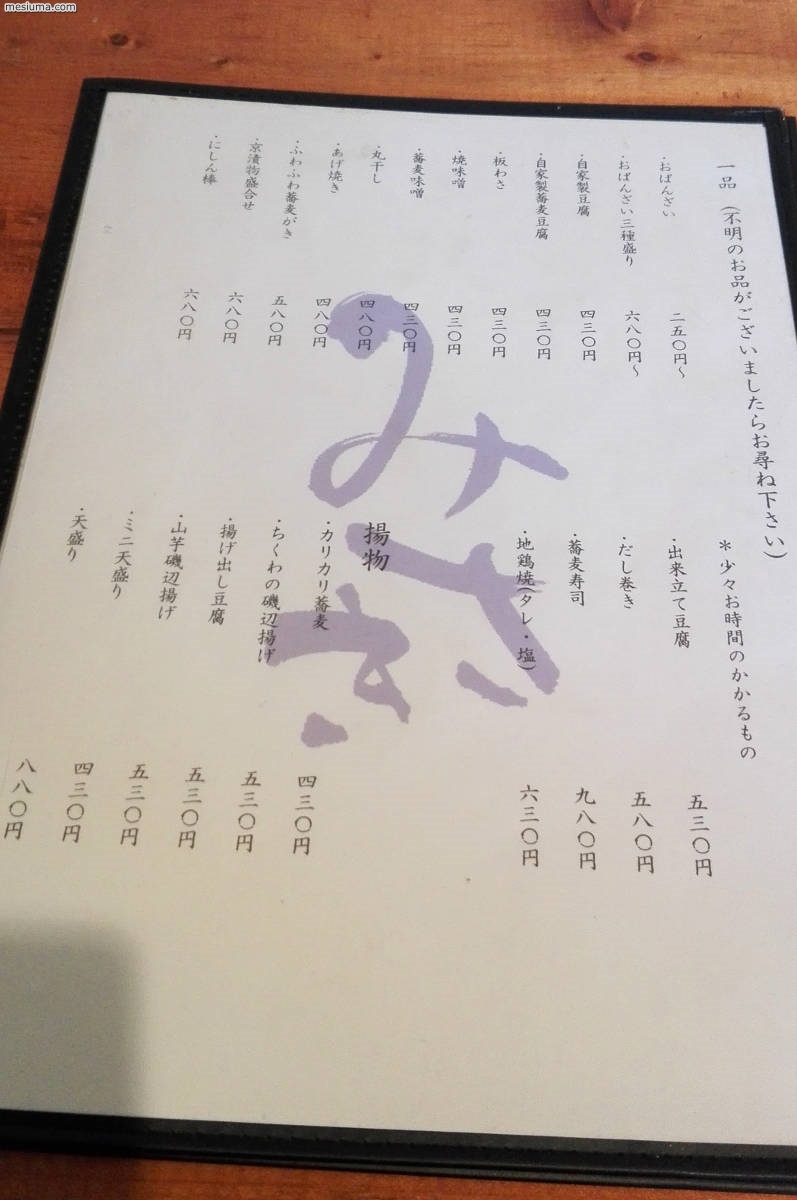 mesiuma.com
一品 (不明のお品がございましたらお尋ね下さい)
・おばんざい 二五〇円〜
・おばんざい三種盛り 六八〇円〜
・自家製豆腐 四三〇円
・自家製蕎麦豆腐 四三〇円
・板わさ 四三〇円
・焼味噌 四三〇円
・蕎麦味噌 四三〇円
・丸干し 四八〇円
・あげ焼き 四八〇円
・ふわふわ蕎麦がき 五八〇円
・京漬物盛合せ 六八〇円
・にしん棒 六八〇円
＊少々お時間のかかるもの
・出来立て豆腐 五三〇円
・だし巻き 五八〇円
・蕎麦寿司 九八〇円
・地鶏焼(タレ・塩) 六三〇円
揚物
・カリカリ蕎麦 四三〇円
・ちくわの磯辺揚げ 五三〇円
・揚げ出し豆腐 五三〇円
・山芋磯辺揚げ 五三〇円
・ミニ天盛り 四三〇円
・天盛り 八八〇円
みさき